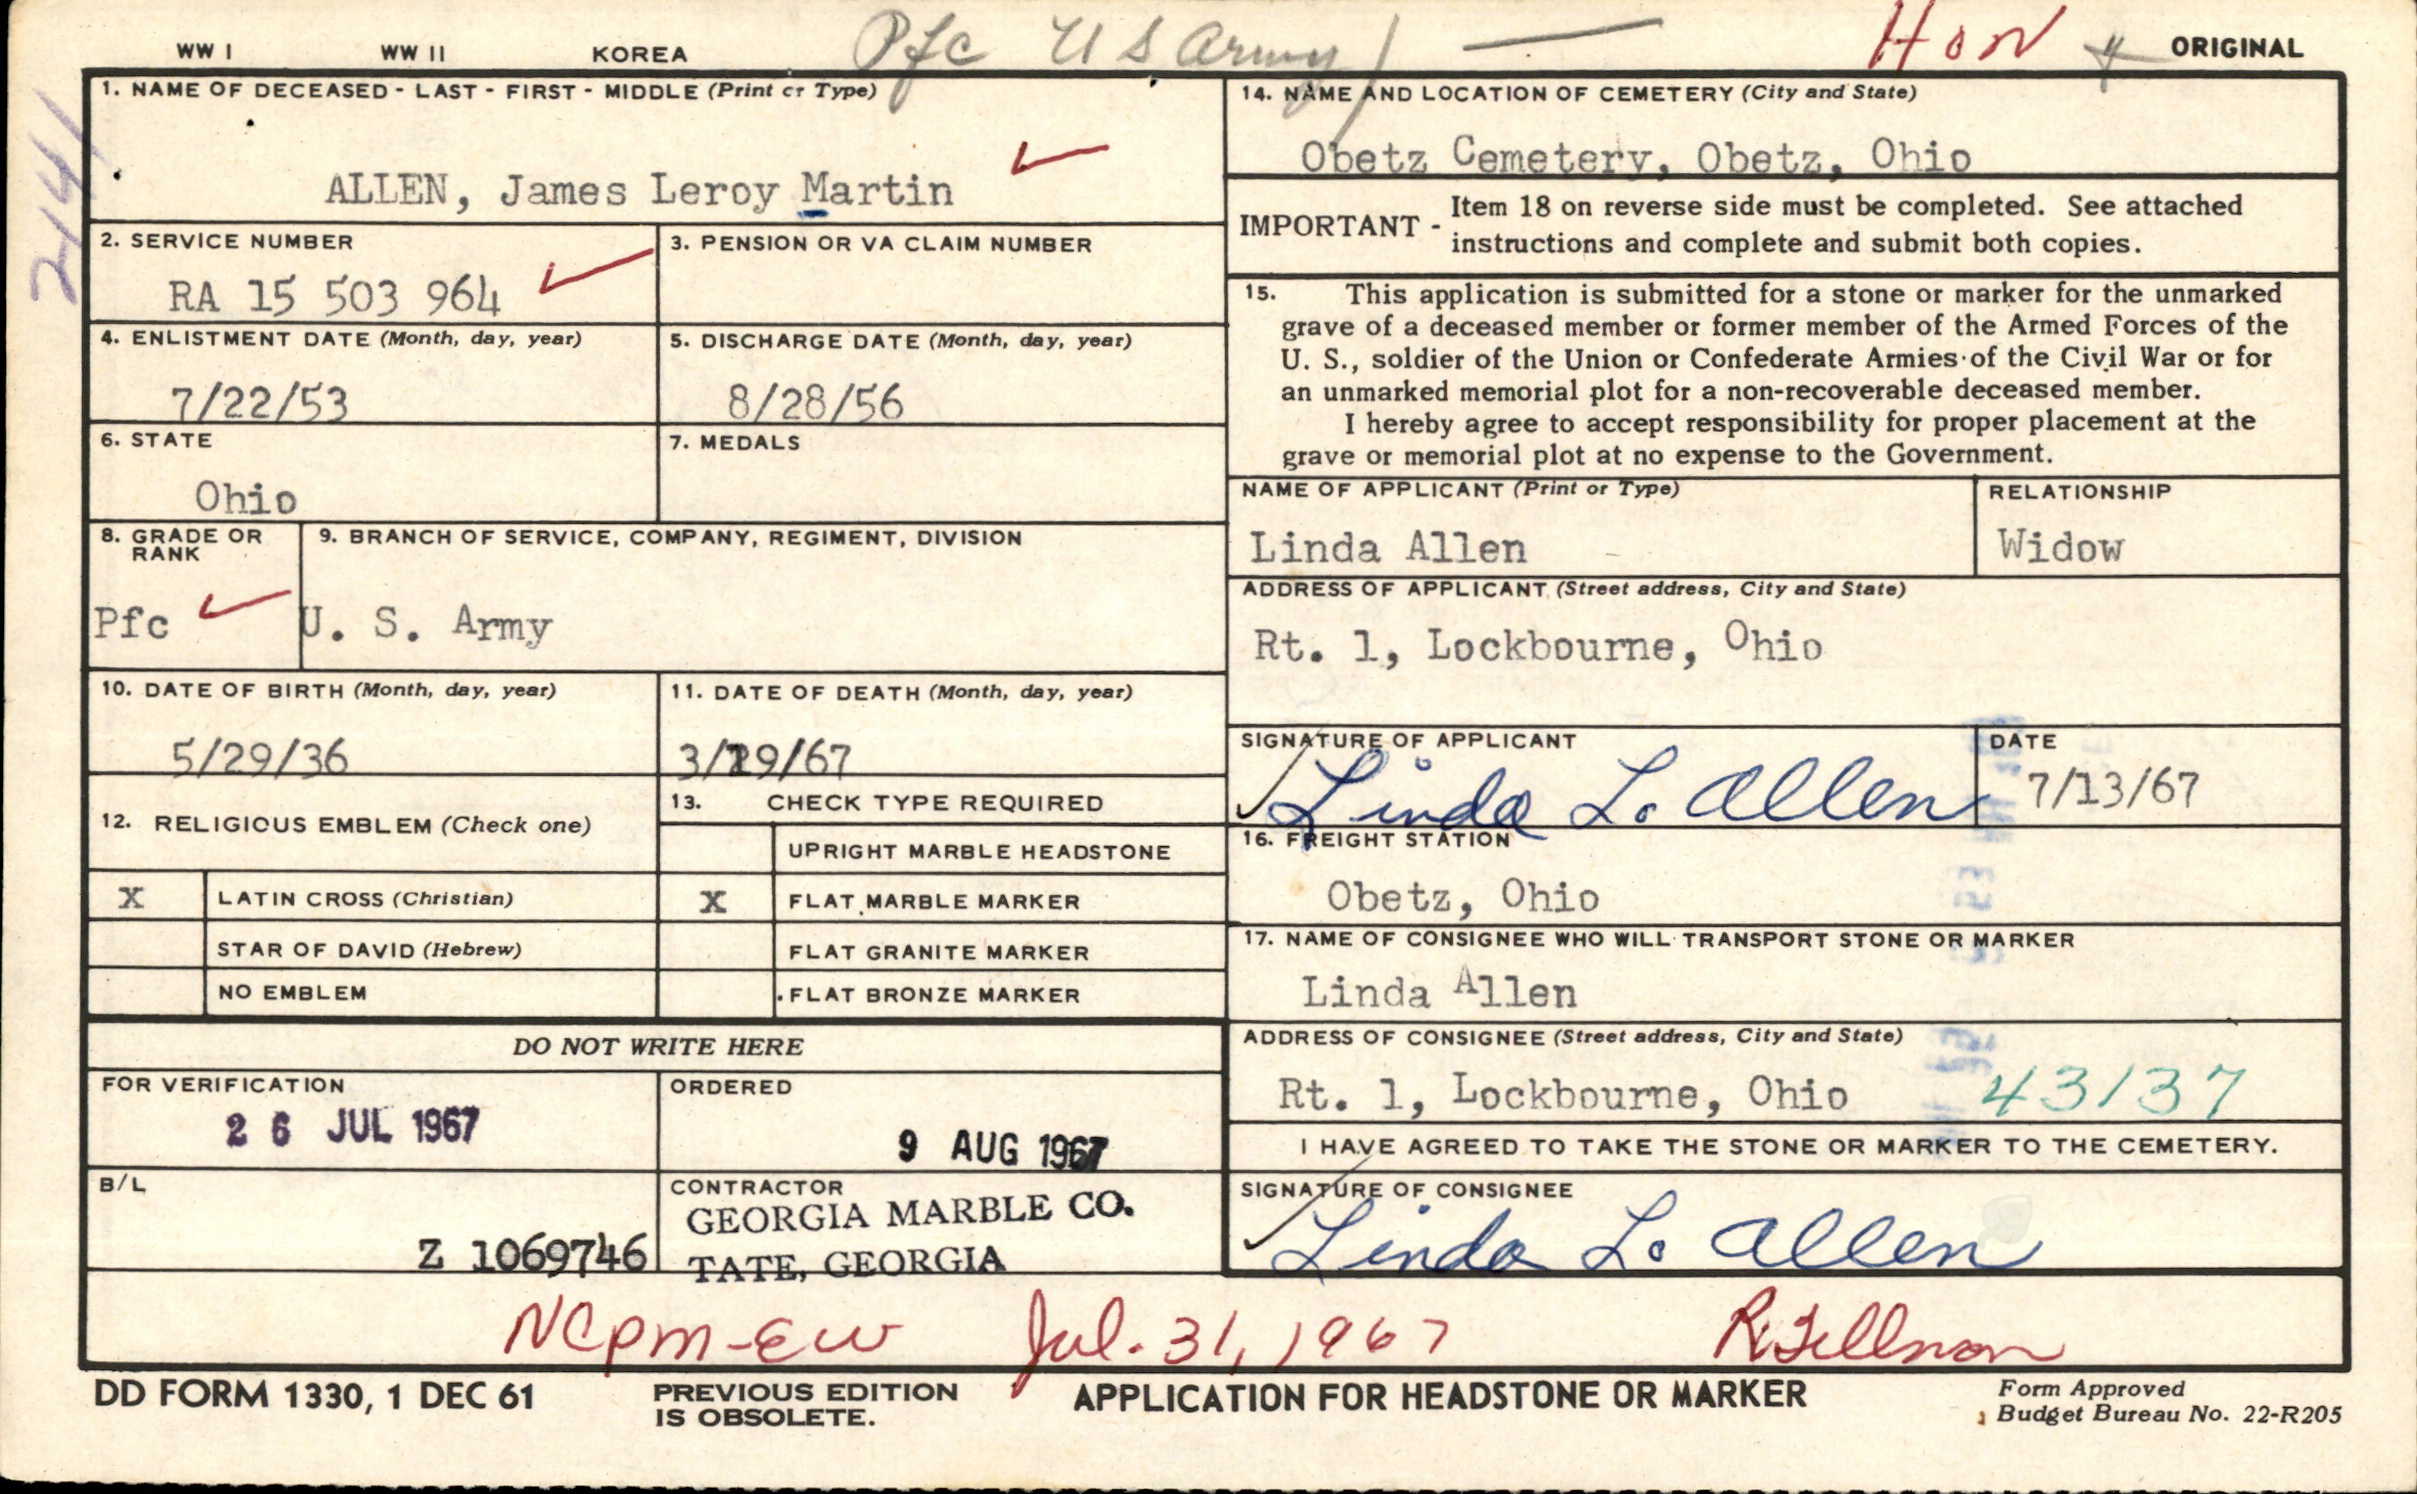 WW I WW II KOREA Pfc US Army HON ORIGINAL
2141
1. NAME OF DECEASED - LAST - FIRST - MIDDLE (Print or Type)
ALLEN, James Leroy Martin
2. SERVICE NUMBER
RA 15 503 964
3. PENSION OR VA CLAIM NUMBER
4. ENLISTMENT DATE (Month, day, year)
7/22/53
5. DISCHARGE DATE (Month, day, year)
8/28/56
6. STATE
Ohio
7. MEDALS
8. GRADE OR
RANK
Pfc
9. BRANCH OF SERVICE, COMPANY, REGIMENT, DIVISION
U. S. Army
10. DATE OF BIRTH (Month, day, year)
5/29/36
11. DATE OF DEATH (Month, day, year)
3/ 9/67
12. RELIGIOUS EMBLEM (Check one)
X LATIN CROSS (Christian)
STAR OF DAVID (Hebrew)
NO EMBLEM
13. CHECK TYPE REQUIRED
UPRIGHT MARBLE HEADSTONE
X FLAT MARBLE MARKER
FLAT GRANITE MARKER
FLAT BRONZE MARKER
DO NOT WRITE HERE
FOR VERIFICATION
26 JUL 1967
ORDERED
9 AUG 1967
B/L
Z 1069746
CONTRACTOR
GEORGIA MARBLE CO.
TATE, GEORGIA
14. NAME AND LOCATION OF CEMETERY (City and State)
Obetz Cemetery, Obetz, Ohio
IMPORTANT - Item 18 on reverse side must be completed. See attached
instructions and complete and submit both copies.
15. This application is submitted for a stone or marker for the unmarked
grave of a deceased member or former member of the Armed Forces of the
U. S., soldier of the Union or Confederate Armies of the Civil War or for
an unmarked memorial plot for a non-recoverable deceased member.
I hereby agree to accept responsibility for proper placement at the
grave or memorial plot at no expense to the Government.
NAME OF APPLICANT (Print or Type)
Linda Allen
RELATIONSHIP
Widow
ADDRESS OF APPLICANT (Street address, City and State)
Rt. 1, Lockbourne, Ohio
SIGNATURE OF APPLICANT
Linda L. Allen
DATE
7/13/67
16. FREIGHT STATION
Obetz, Ohio
17. NAME OF CONSIGNEE WHO WILL TRANSPORT STONE OR MARKER
Linda Allen
ADDRESS OF CONSIGNEE (Street address, City and State)
Rt. 1, Lockbourne, Ohio 43137
I HAVE AGREED TO TAKE THE STONE OR MARKER TO THE CEMETERY.
SIGNATURE OF CONSIGNEE
Linda L. Allen
NCPM-EW Jul. 31, 1967 
DD FORM 1330, 1 DEC 61
PREVIOUS EDITION
IS OBSOLETE.
APPLICATION FOR HEADSTONE OR MARKER
Form Approved
Budget Bureau No. 22-R205